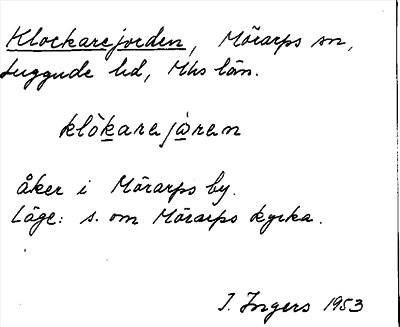 Klockarejorden, Mörarps sn,
Luggude hd, Mhs län.
klò̱karejo̱ren
åker i Mörarps by.
Läge: s. om Mörarps kyrka.
I. Ingers 1953